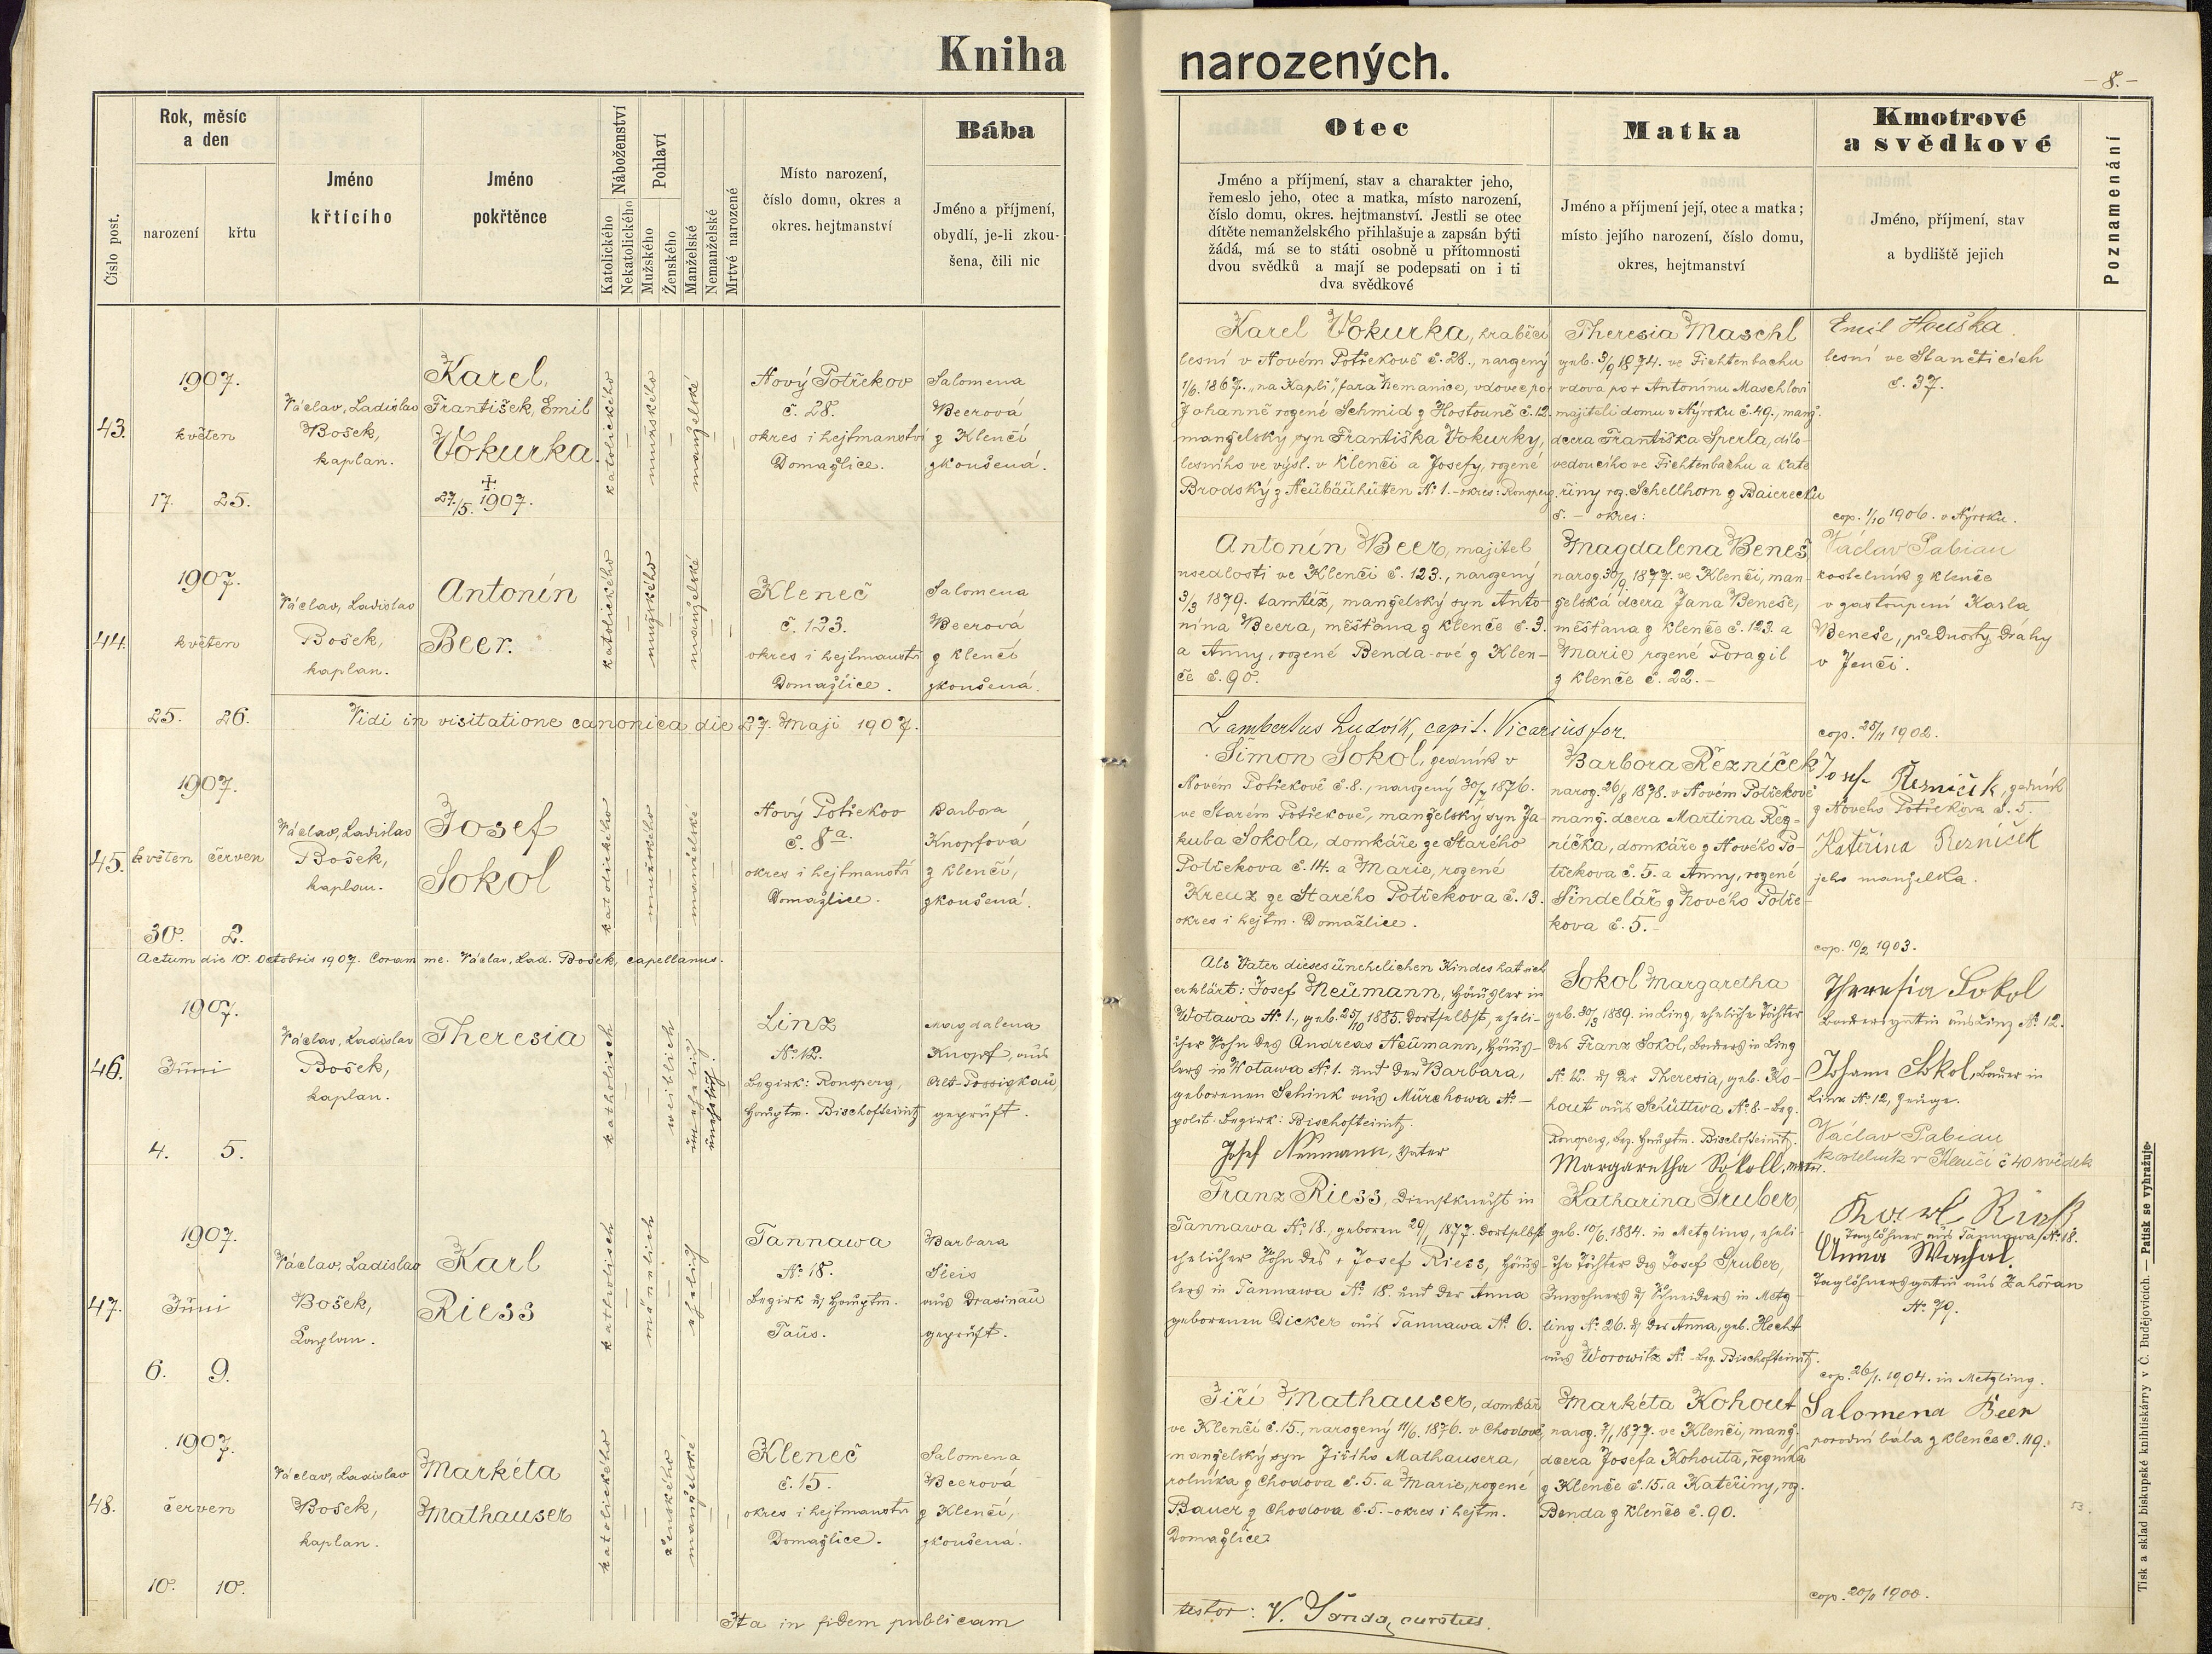 Kniha
narozených.
- 8. -
Číslo post.
Rok, měsíc
a den
narození
křtu
Jméno
křtícího
Jméno
pokřtěnce
Náboženství
Katolického
Nekatolického
Pohlaví
Mužského
Ženského
Manželské
Nemanželské
Mrtvé narozené
Místo narození,
číslo domu, okres a
okres. hejtmanství
Bába
Jméno a příjmení,
obydlí, je-li zkou-
šena, čili nic
Otec
Jméno a příjmení, stav a charakter jeho,
řemeslo jeho, otec a matka, místo narození,
číslo domu, okres. hejtmanství. Jestli se otec
dítěte nemanželského přihlašuje a zapsán býti
žádá, má se to státi osobně u přítomnosti
dvou svědků a mají se podepsati on i ti
dva svědkové
Matka
Jméno a příjmení její, otec a matka;
místo jejího narození, číslo domu,
okres, hejtmanství
Kmotrové
a svědkové
Jméno, příjmení, stav
a bydliště jejich
Poznamenání
43.
1907.
květen
17. 25.
Václav, Ladislav
Bošek,
kaplan.
Karel,
František, Emil
Vokurka.
†
27./5. 1907.
katolického
mužského
manželské
Nový Potřekov
č. 28.
okres i hejtmanství
Domažlice.
Salomena
Beerová
z Klenčí
zkoušená.
Karel Vokurka, hraběcí
lesní v Novém Potřekově č. 28., narozený
1/6. 1867. „na Kapli", fara Nemanice, vdovec po
Johanně rozené Schmid z Hostouně č. 12.
manželský syn Františka Vokurky,
lesního ve výsl. v Klenčí a Josefy, rozené
Brodský z Neubäuhütten No 1. - okres: Ronsperg.
Theresia Maschl
geb. 3/9 1874. ve Fichtenbachu
vdova po + Antonínu Maschlovi
majiteli domu v Nýrsku č. 49., manž.
dcera Františka Sperla, dílo-
vedoucího ve Fichtenbachu a Kate
řiny roz. Schellhorn z Baierecku
č. - okres:
Emil Houška.
lesní ve Stanětících
č. 37.
cop. 1/10 1906. v Nýrsku.
44.
1907.
květen
25. 26.
Václav, Ladislav
Bošek,
kaplan.
Antonín
Beer.
katolického
mužského
manželské
Kleneč
č. 123.
okres i hejtmanství
Domažlice.
Salomena
Beerová
z Klenčí
zkoušená.
Antonín Beer, majitel
usedlosti ve Klenčí č. 123., narozený
3/3 1879. tamtéž, manželský syn Anto-
nína Beera, měšťana z Klenče č. 3.
a Anny, rozené Benda-ové z Klen-
če č. 90.
Magdalena Beneš
naroz. 30/9 1877. ve Klenčí, man-
želská dcera Jana Beneše,
měšťana z Klenče č. 123. a
Marie rozené Poragil
z Klenče č. 22. -
Václav Pabian
kostelník z Klenče
v zastoupení Karla
Beneše, přednosty dráhy
v Jenči.
cop. 25/11 1902.
Vidi in visitatione canonica die 27. Maji 1907.
Lambertus Ludvík, capit. Vicarius for.
45.
1907.
květen červen
30. 2.
Václav, Ladislav
Bošek,
kaplan.
Josef
Sokol
katolického
mužského
manželské
Nový Potřekov
č. 8a.
okres i hejtmanství
Domažlice.
Barbora
Knopfová
z Klenčí,
zkoušená.
Šimon Sokol, zedník v
Novém Potřekově č. 8., narozený 30/7 1876.
ve Starém Potřekově, manželský syn Ja-
kuba Sokola, domkáře ze Starého
Potřekova č. 14. a Marie, rozené
Kreuz ze Starého Potřekova č. 13.
okres i hejtm. Domažlice.
Barbora Řezníček
naroz. 26/8 1878. v Novém Potřekově
manž. dcera Martina Řez-
níčka, domkáře z Nového Po-
třekova č. 5. a Anny, rozené
Šindelář z Nového Potře-
kova č. 5. -
Josef Řezníček, zedník
z Nového Potřekova č. 5.
Kateřina Řezníček
jeho manželka.
cop. 10/2 1903.
Actum die 10. Octobris 1907. Coram me. Václav, Lad. Bošek, capellanus.
46.
1907.
Juni
4. 5.
Václav, Ladislav
Bošek,
kaplan.
Theresia
katholisch
weiblich
unehelich
unehelich
Linz
No 12.
Bezirk: Ronsperg,
Hauptm. Bischofteinitz
Magdalena
Knopf, aus
Alt-Possigkau,
geprüft.
Als Vater dieses unehelichen Kindes hat sich
erklärt: Josef Neumann, Häusler in
Wotawa No 1., geb. 25/10 1885. dortselbst, eheli-
cher Sohn des Andreas Neumann, Häus-
lers in Wotawa No 1. und der Barbara,
geborenen Schink aus Mürchowa No -
polit. Bezirk: Bischofteinitz.
Josef Neumann, Vater
Sokol Margaretha
geb. 30/12 1889. in Linz, eheliche Tochter
des Franz Sokol, Bauers in Linz
No 12. & der Theresia, geb. Ko-
hout aus Schüttwa No 8. - Bez.
Ronsperg, Bez. Hauptm. Bischofteinitz.
Margaretha Sokoll, Mutter.
Theresia Sokol
Bauersgattin aus Linz No 12.
Johann Sokol, Bauer in
Linz No 12, Zeuge.
Václav Pabian
kostelník v Klenčí č 40 svědek
47.
1907.
Juni
6. 9.
Václav, Ladislav
Bošek,
Kaplan.
Karl
Riess
katholisch
mänlich
ehelich
Tannawa
No 18.
Bezirk & Hauptm.
Taus.
Barbara
Sleis
aus Drasinau
geprüft.
Franz Riess, Dienstknecht in
Tannawa No 18. geboren 29/1 1877. dortselbst
ehelicher Sohn des + Josef Riess, Häus-
lers in Tannawa No 18. und der Anna
geborenen Dicker aus Tannawa No 6.
Katharina Gruber,
geb. 10/6. 1884. in Metzling, eheli-
che Tochter des Josef Gruber,
Inwohners & Schneiders in Metz-
ling No 26. & der Anna, geb. Hecht
aus Worowitz No - Bez. Bischofteinitz.
Karl Rieß
Taglöhner aus Tannawa No 18.
Anna Wachal.
Taglöhnersgattin aus Zahořan
No 79.
cop. 26/1. 1904. in Metzling.
48.
1907.
červen
10. 10.
Václav, Ladislav
Bošek,
kaplan.
Markéta
Mathauser
katolického
ženského
manželské
Kleneč
č. 15.
okres i hejtmanství
Domažlice.
Salomena
Beerová
z Klenčí,
zkoušená.
Jiří Mathauser, domkář
ve Klenčí č. 15., narozený 11/6. 1876. v Chodově,
manželský syn Jiřího Mathausera,
rolníka z Chodova č. 5. a Marie, rozené
Bauer z Chodova č. 5. - okres i hejtm.
Domažlice.
Markéta Kohout
naroz. 7/1 1877. ve Klenčí, manž.
dcera Josefa Kohouta, řezníka
z Klenče č. 15. a Kateřiny, roz.
Benda z Klenče č. 90.
Salomena Beer
porodní bába z Klenče č. 119.
cop. 20/11 1900.
53.
Ita in fidem publicam
testor: V. Šanda, curatus.
Tisk a sklad biskupské knihtiskárny v Č. Budějovicích. — Patisk se vyhražuje.